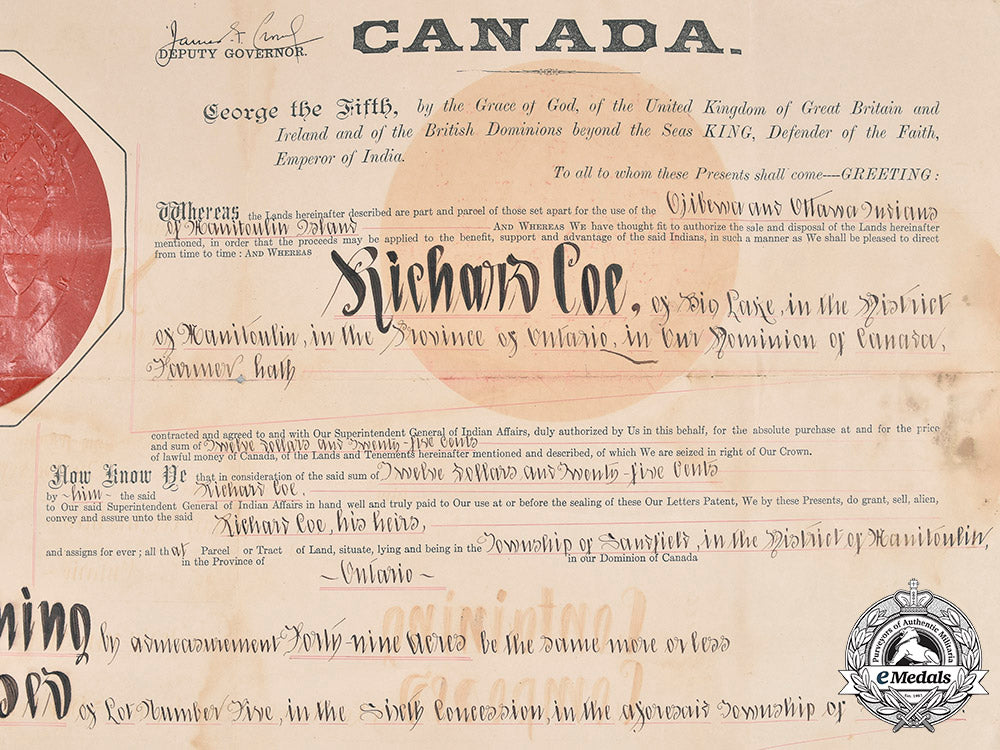 CANADA.
DEPUTY GOVERNOR.
George the Fifth, by the Grace of God, of the United Kingdom of Great Britain and
Ireland and of the British Dominions beyond the Seas KING, Defender of the Faith,
Emperor of India.
To all to whom these Presents shall come—GREETING:
Whereas the Lands hereinafter described are part and parcel of those set apart for the use of the Ojibewa and Ottawa Indians
of Manitoulin Island AND WHEREAS We have thought fit to authorize the sale and disposal of the Lands hereinafter
mentioned, in order that the proceeds may be applied to the benefit, support and advantage of the said Indians, in such a manner as We shall be pleased to direct
from time to time: AND WHEREAS
Richard Coe, of Big Lake, in the District
of Manitoulin, in the Province of Ontario, in Our Dominion of Canada,
Farmer, hath
contracted and agreed to and with Our Superintendent General of Indian Affairs, duly authorized by Us in this behalf, for the absolute purchase at and for the price
and sum of Twelve Dollars and Twenty-five Cents
of lawful money of Canada, of the Lands and Tenements hereinafter mentioned and described, of which We are seized in right of Our Crown.
Now Know Ye that in consideration of the said sum of Twelve Dollars and Twenty-five Cents
by -him- the said Richard Coe.
to Our said Superintendent General of Indian Affairs in hand well and truly paid to Our use at or before the sealing of these Our Letters Patent, We by these Presents, do grant, sell, alien,
convey and assure unto the said Richard Coe, his heirs,
and assigns for ever; all that Parcel or Tract of Land, situate, lying and being in the Township of Sandfield, in the District of Manitoulin,
in the Province of -Ontario- in our Dominion of Canada
ning by admeasurement Forty-nine acres be the same more or less
of Lot Number Five, in the Sixth Concession, in the aforesaid Township of
Containing
Composed
Purveyors of Authentic Militaria
eMedals